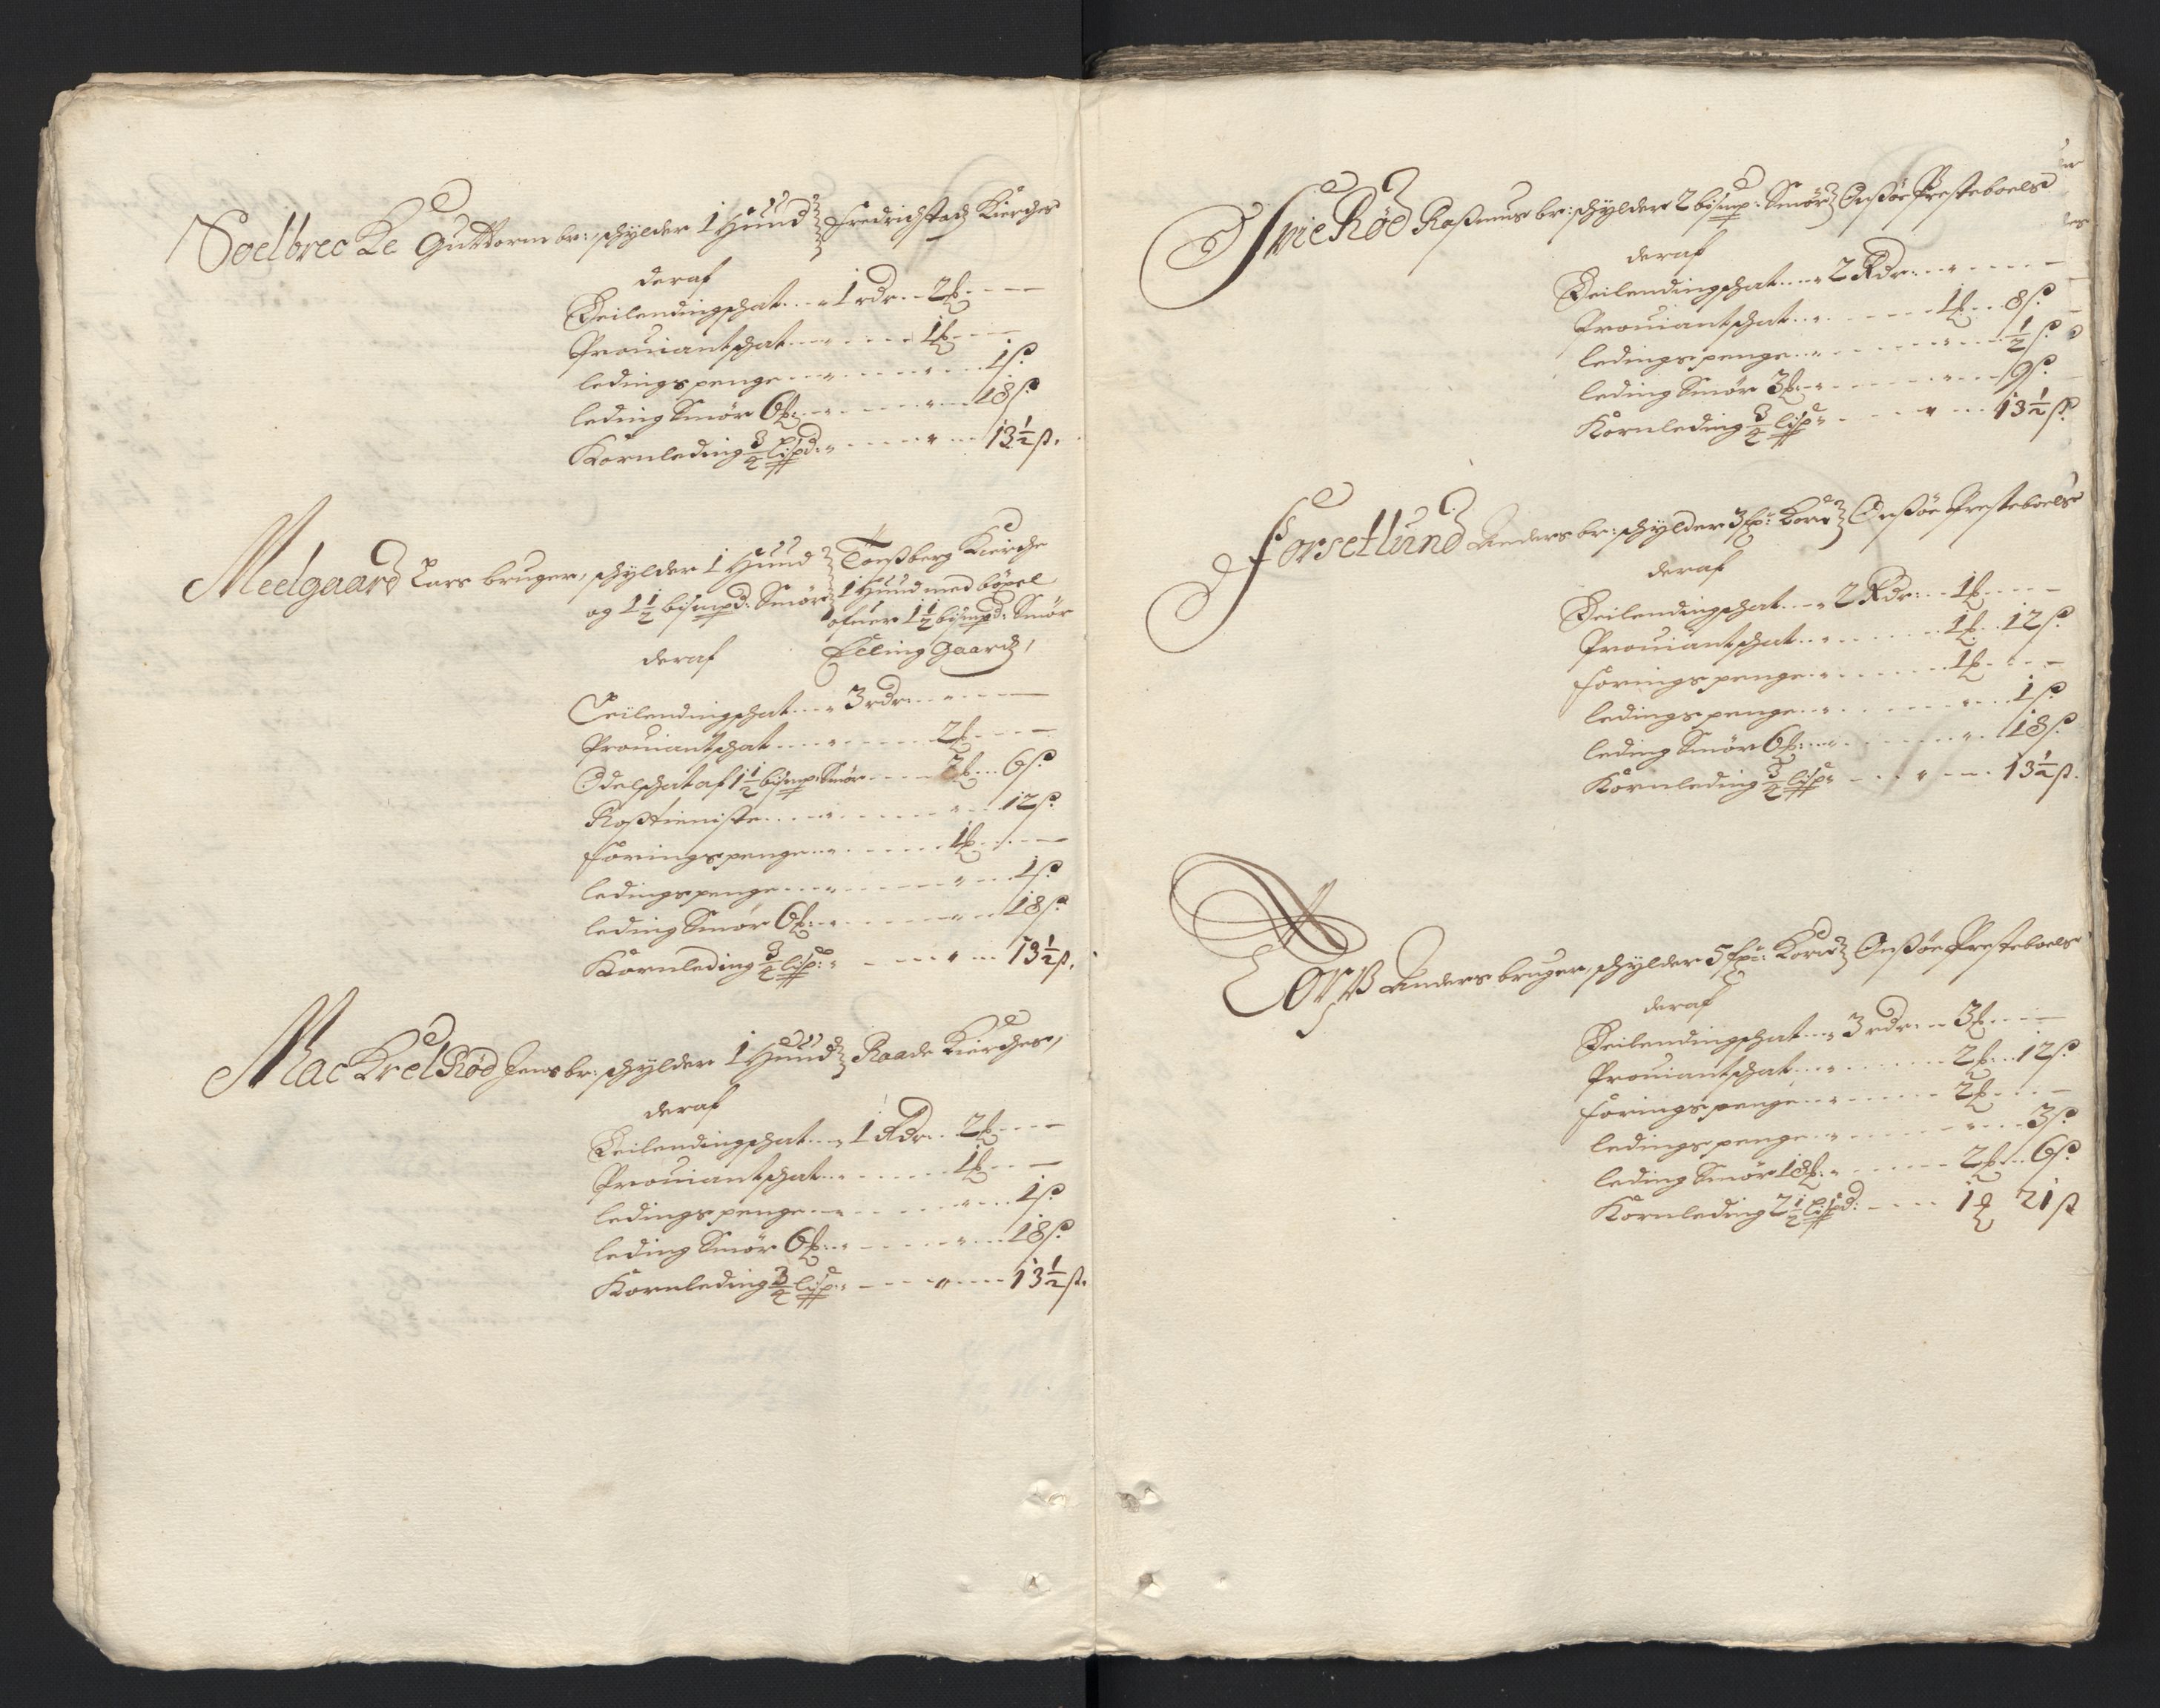 Soelbrecke Guttorm br: schylder 1 Huud Fredrichstads Kierches
deraf
Leilendingschat 1 rdr 2 ℔
Prouiantschat 1 ℔
ledingspenge 1 ß
leding Smør 6 ℔: 18 ß
Kornleding 3/4 lispd: 13 1/2 ß.
Meelgaard Lars bruger, schylder 1 Huud Tonßberg Kierche
og 1 1/2 bismpd: Smør 1 Huud med böxel
ofuer 1 1/2 bismpd: Smør
deraf Elling Gaard,
Leilendingschat 3 rdr
Prouiantschat 2 ℔
Odelschat af 1 1/2 bismp: Smør 2 ℔ 6 ß
Roßtieniste 12 ß
foringspenge 1 ℔
ledingspenge 1 ß
leding Smør 6 ℔: 18 ß
Kornleding 3/4 lisp: 13 1/2 ß.
MacKrelRød Jens br: schylder 1 Huud Raade Kierches,
deraf
Leilendingschat 1 Rdr 2 ℔
Prouiantschat 1 ℔
ledingspenge 1 ß
leding Smør 6 ℔: 18 ß
Kornleding 3/4 lisp: 13 1/2 ß.
Roßmus br: schylder 2 bismp: Smør Onßøe Presteboels
deraf
Leilendingschat 2 Rdr
Prouiantschat 1 ℔ 8 ß
ledingspenge 1/2 ß
leding Smør 3 ℔: 9 ß
Kornleding 3/4 lisp: 13 1/2 ß
Forsetlund Anders br: schylder 3 fp: Korn Onßøe Presteboels
deraf
Leilendingschat 2 Rdr: 1 ℔
Prouiantschat 1 ℔ 12 ß
foringspenge 1 ℔
ledingspenge 1 ß
leding Smør 6 ℔: 18 ß
Kornleding 3/4 lisp: 13 1/2 ß.
Torp Anders bruger, schylder 5 fp: Korn Onßøe Presteboels
deraf
Leilendingschat 3 rdr 3 ℔
Prouiantschat 2 ℔ 12 ß
foringspenge 2 ℔
ledingspenge 3 ß
leding Smør 18 ℔: 2 ℔ 6 ß
Kornleding 2 1/2 lispd: 1 ℔ 21 ß